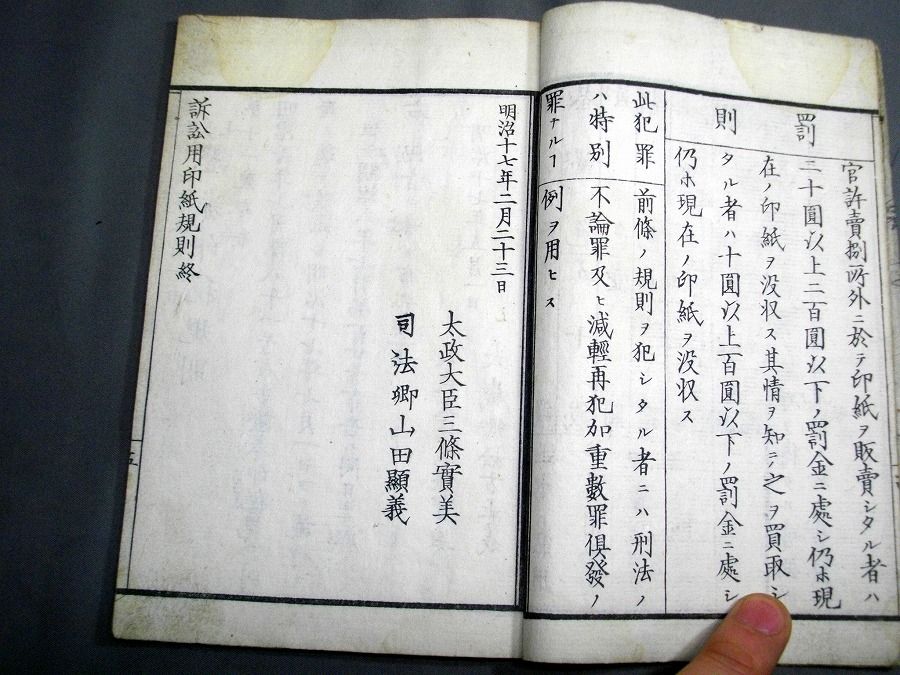 罰則
官許賣捌所外ニ於テ印紙ヲ販賣シタル者ハ
二十圓以上二百圓以下ノ罰金ニ處シ仍ホ現
在ノ印紙ヲ没収ス其情ヲ知テ之ヲ買取シ
タル者ハ十圓以上百圓以下ノ罰金ニ處シ
仍ホ現在ノ印紙ヲ没収ス
此犯罪
ハ特別
罪ナルヿ
前條ノ規則ヲ犯シタル者ニハ刑法ノ
不論罪及ヒ減輕再犯加重數罪俱發ノ
例ヲ用ヒス
明治十七年二月二十三日
太政大臣三條實美
司法卿山田顯義
訴訟用印紙規則終